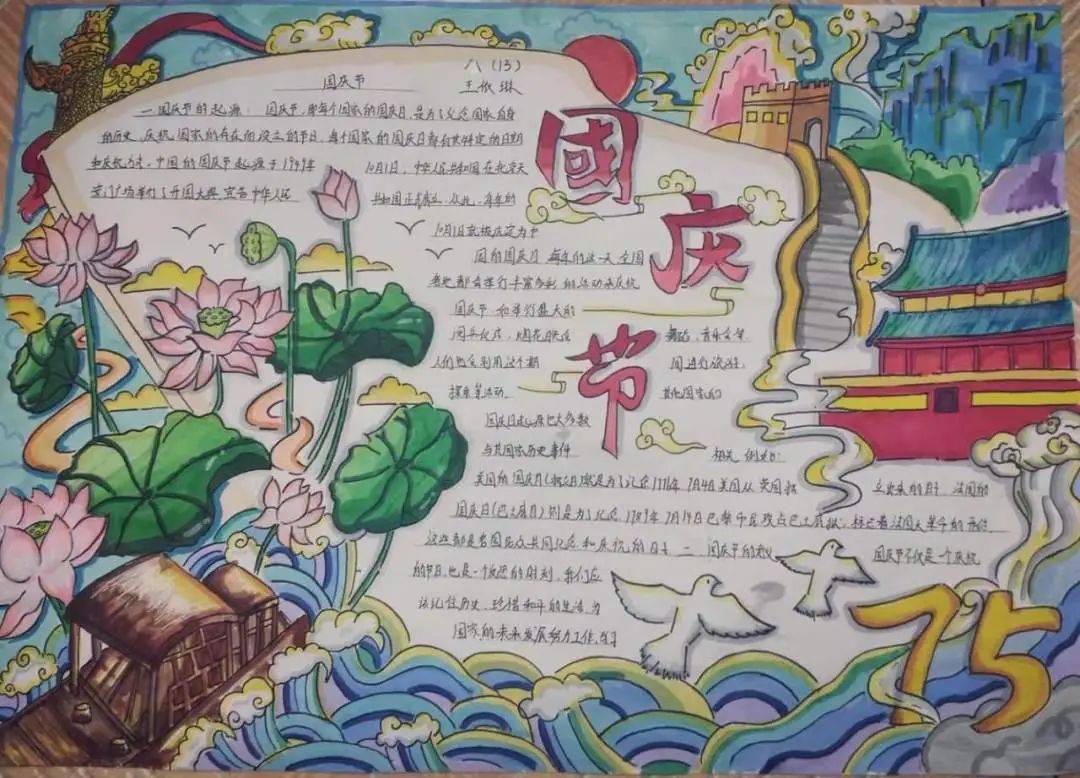 八（13）
国庆节
王依琳
一 国庆节的起源： 国庆节，即每个国家的国庆日，是为了纪念国家自身
的历史、庆祝国家的存在而设立的节日，每个国家的国庆日都有其特定的日期
和庆祝方式，中国的国庆节起源于1949年 10月1日，中华人民共和国在北京天
安门广场举行了开国大典，宣告中华人民 共和国正式成立，从此，每年的
10月1日就被定为中
国的国庆日 每年的这一天 全国
各地都会举行丰富多彩 的活动来庆祝
国庆节 和举行盛大的
阅兵仪式，烟花 舞蹈、音乐会等
人们也会利用这个期 间进行旅游，
探亲等活动， 其他国家的
国庆日 大多数
与其国家历史事件 相关 例如：
美国的国庆日（独立日）就是为了纪念1776年7月4日美国从英国独 立出来的日子 法国的
国庆日（巴士底日）则是为了纪念1789年7月14日巴黎市民攻占巴士底狱，标志着法国大革命的开始
这些都是各国民众共同纪念和庆祝的日子 二 国庆节的 国庆节不仅是一个庆祝
的节日，也是一个 的时刻，我们应
该记住历史，珍惜和平的生活，为
国家的未来发展努力工作，
國
庆
节
75